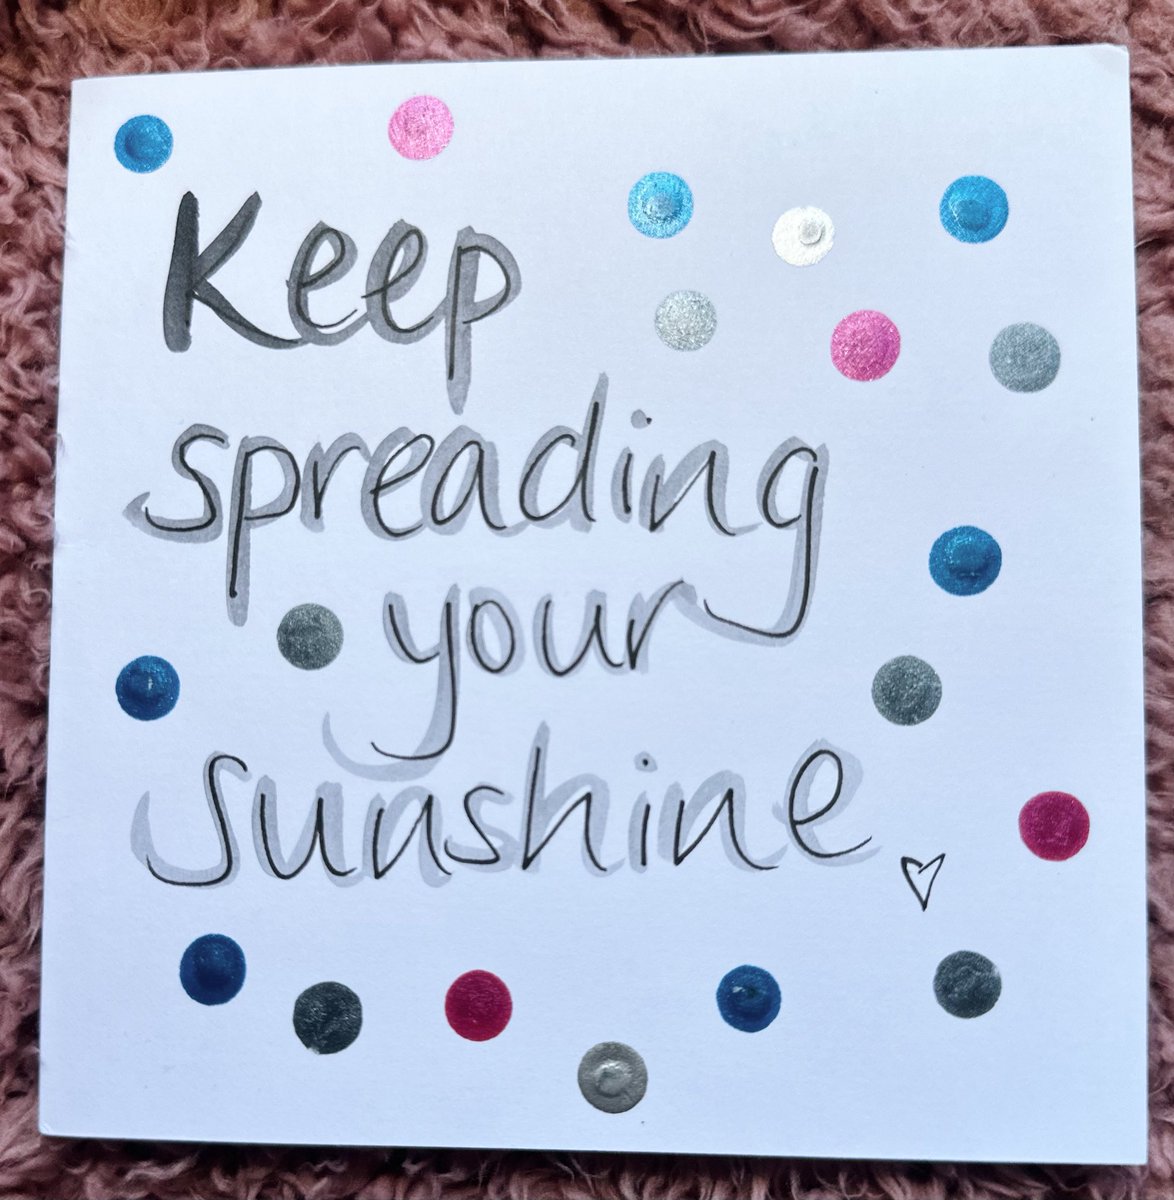 Keep
spreading
your
sunshine